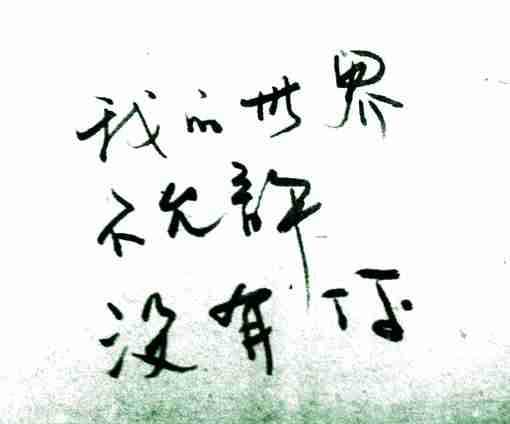 我的世界
不允許
没有你